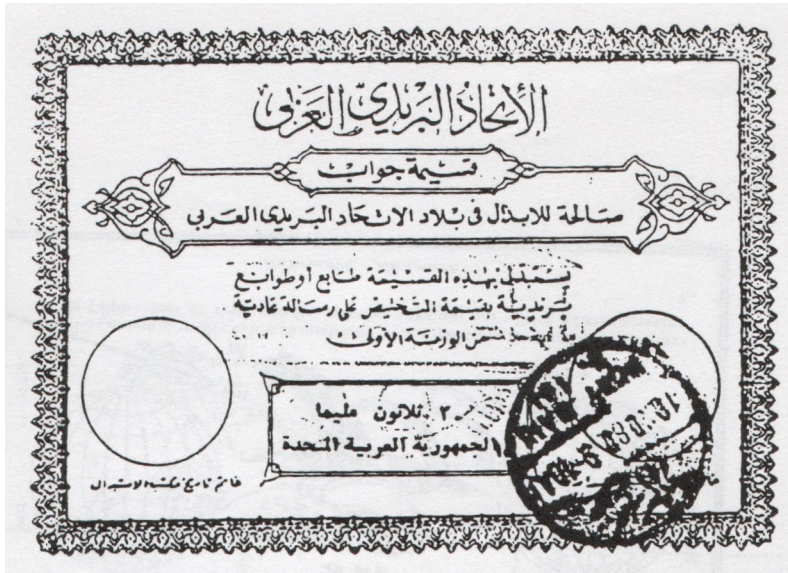 الأتحاد البريدي العربي
قسيمة جواب
صالحة للابدال في بلاد الاتحاد البريدي العربي
يستبدل بهذه القسيمة طابع أو طوابع
بريدية بقيمة التخليص على رسالة عادية
الوزنة الأولى
ثلاثون مليما
الجمهورية العربية المتحدة
خاتم تاريخ مكتب الاستبدال